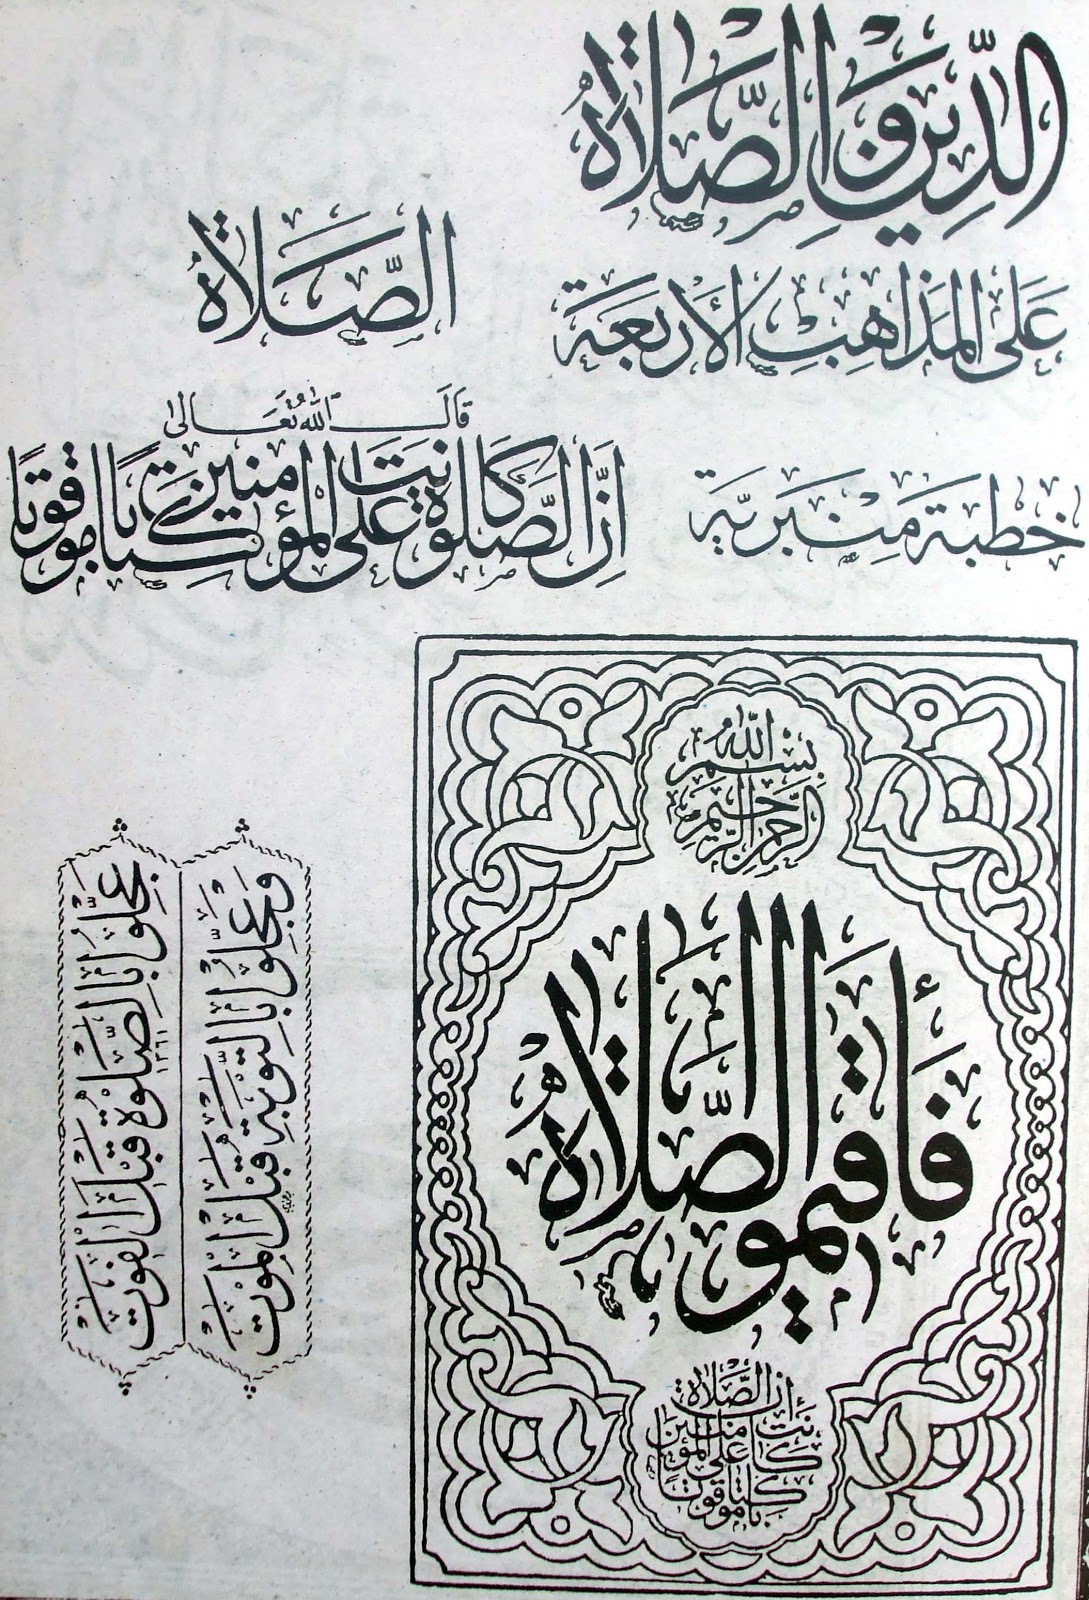 الدِّين وَالصَّلَاةُ
عَلَى المَذَاهِبِ الأَرْبَعَة
الصَّلَاةُ
قَالَ اللهُ تَعَالَى
اِنَّ الصَّلٰوةَ كَانَتْ عَلَى الْمُؤْمِنِينَ كِتَابًا مَوْقُوتًا
خطبة مِنْبَرِيَّة
بِسْمِ اللهِ
الرَّحْمٰنِ الرَّحِيمِ
فَأَقِيمُوا الصَّلَاةَ
إنَّ الصَّلَاةَ
كَانَتْ عَلَى الْمُؤْمِنِينَ
كِتَابًا مَوْقُوتًا
عَجِّلُوا بِالصَّلٰوةِ قَبْلَ الْفَوْتِ
١٣٦١
وَعَجِّلُوا بِالتَّوْبَةِ قَبْلَ الْمَوْتِ